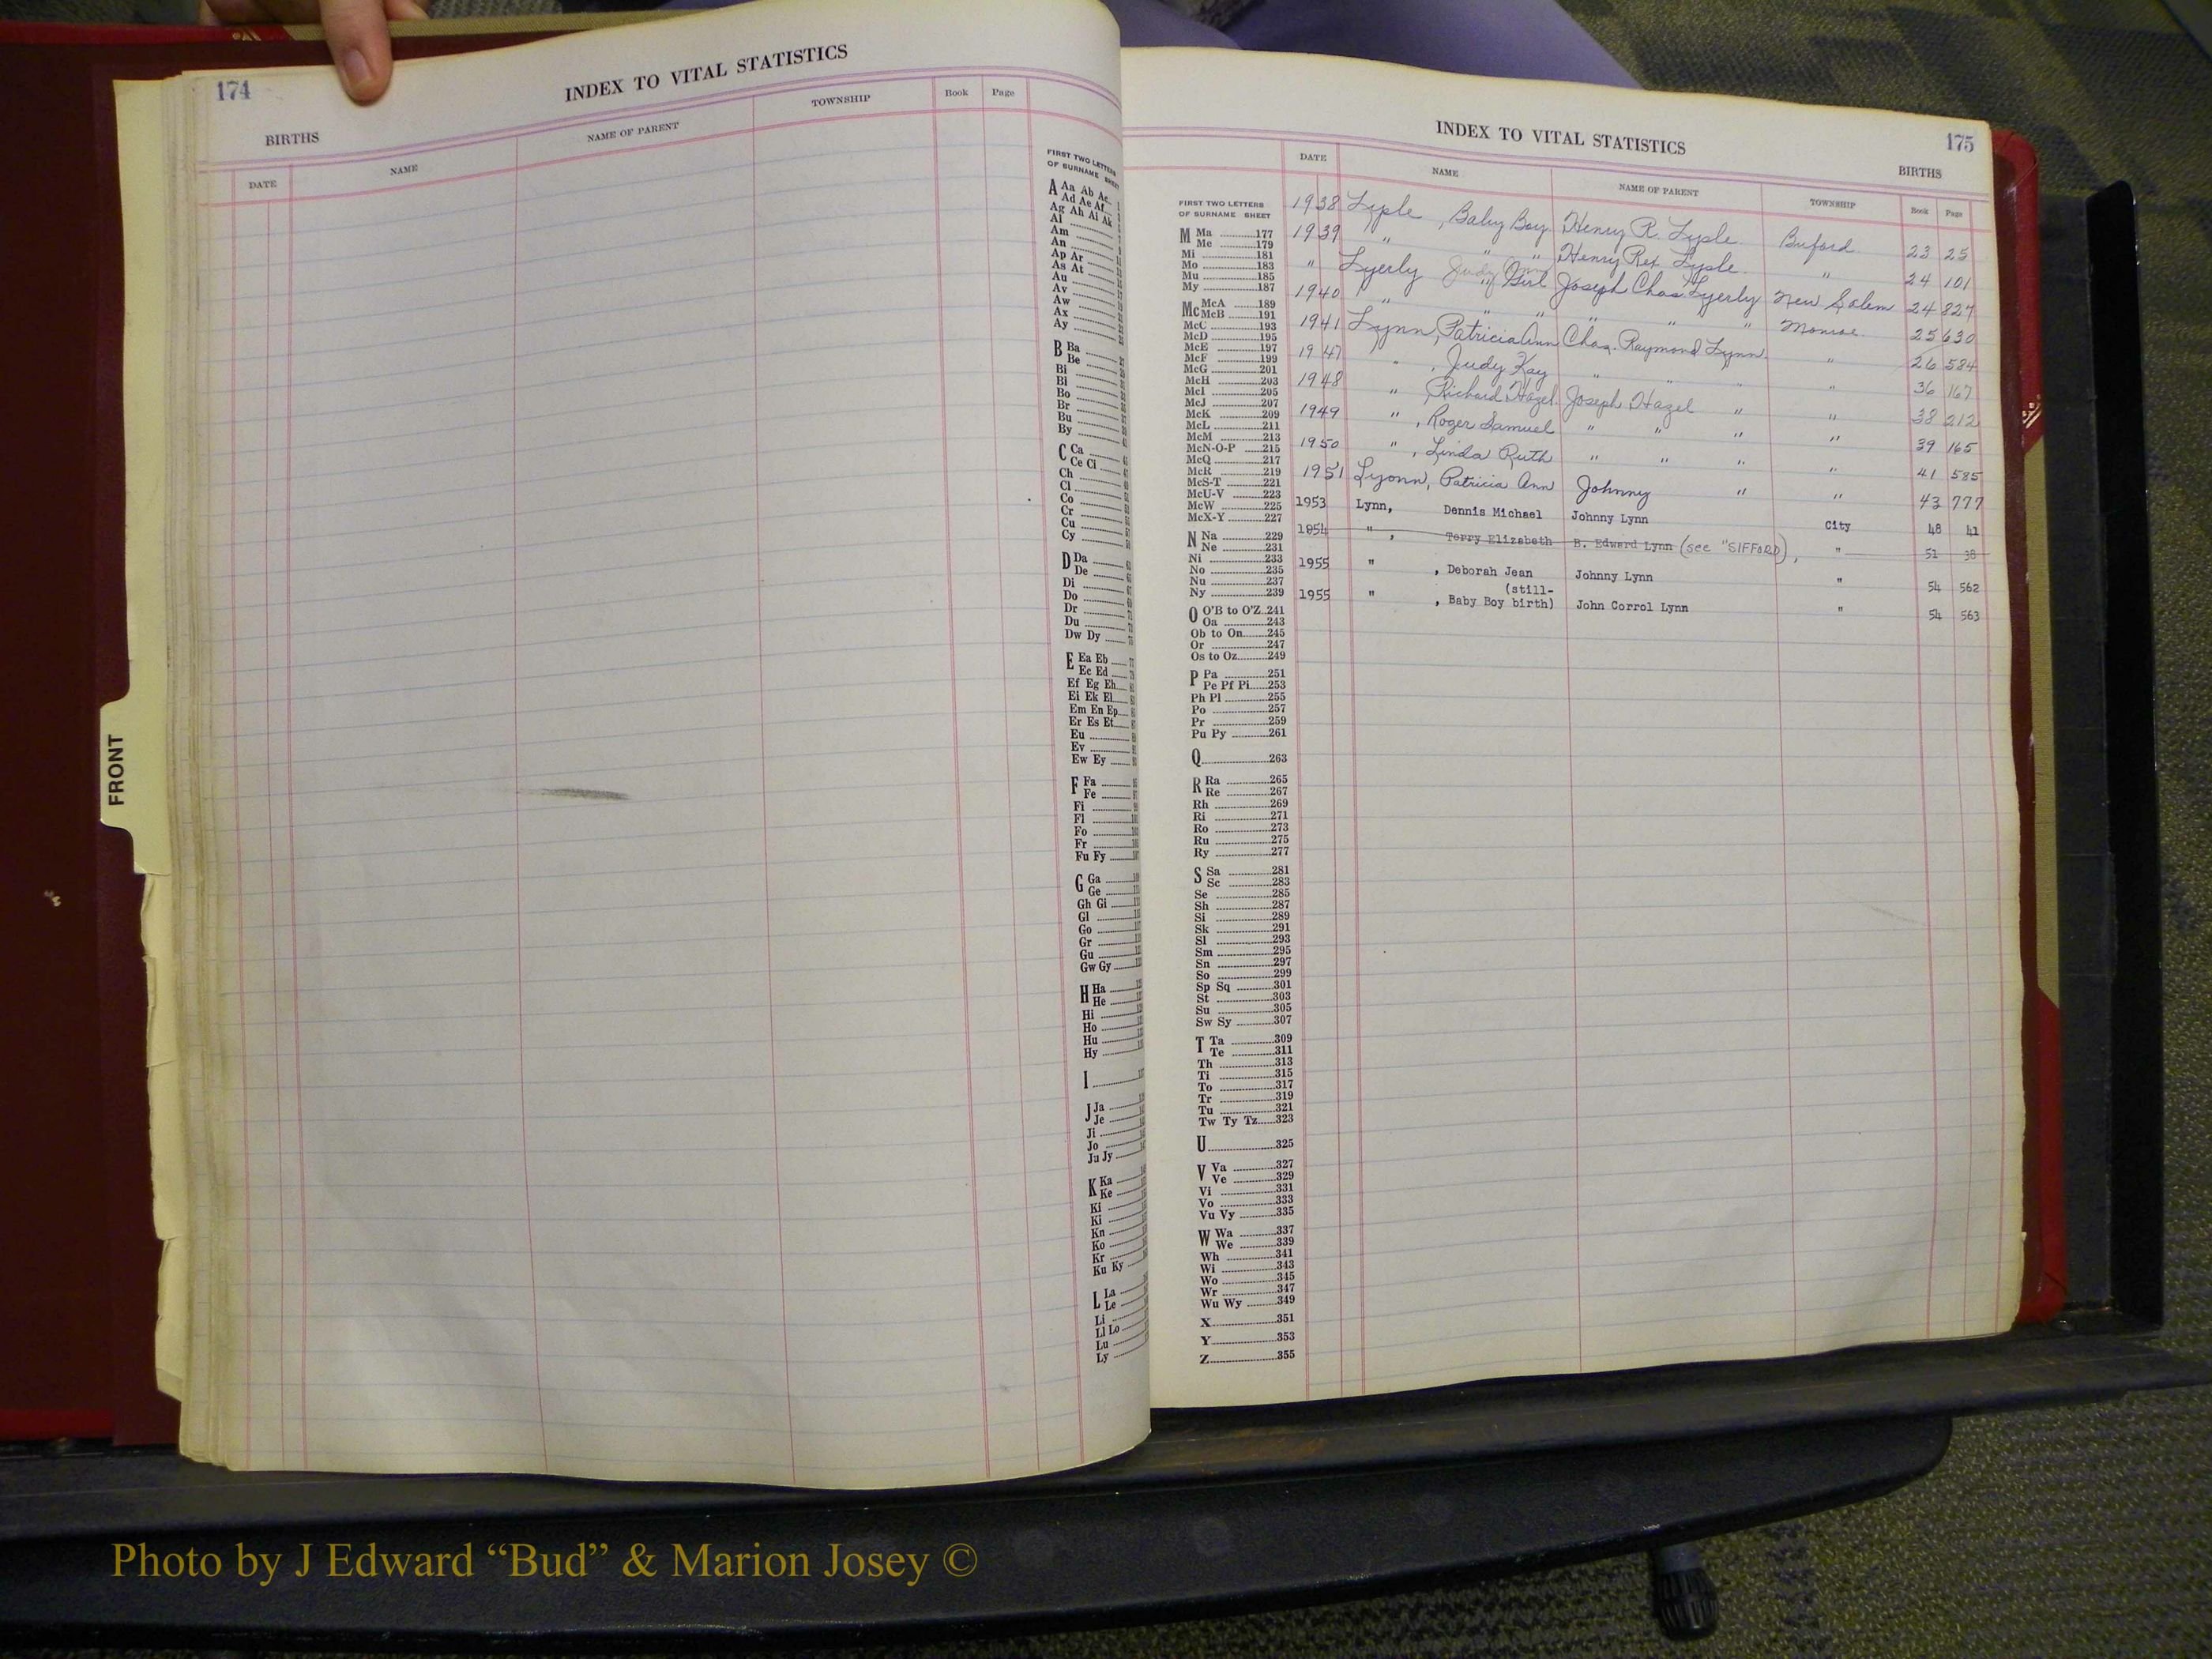 174
INDEX TO VITAL STATISTICS
BIRTHS
DATE NAME NAME OF PARENT TOWNSHIP Book Page
FIRST TWO LETTERS
OF SURNAME SHEET
A Aa Ab Ac
Ad Ae Af
Ag Ah Ai Ak
Al
Am
An
Ap Ar
As At
Au
Av
Aw
Ax
Ay
B Ba
Be
Bi
Bl
Bo
Br
Bu
By
C Ca
Ce Ci
Ch
Cl
Co
Cr
Cu
Cy
D Da
De
Di
Do
Dr
Du
Dw Dy
E Ea Eb
Ec Ed
Ef Eg Eh
Ei Ek El
Em En Ep
Er Es Et
Eu
Ev
Ew Ey
F Fa
Fe
Fi
Fl
Fo
Fr
Fu Fy
G Ga
Ge
Gh Gi
Gl
Go
Gr
Gu
Gw Gy
H Ha
He
Hi
Ho
Hu
Hy
I
J Ja
Je
Ji
Jo
Ju Jy
K Ka
Ke
Ki
Kl
Kn
Ko
Kr
Ku Ky
L La
Le
Li
Ll Lo
Lu
Ly
FRONT
INDEX TO VITAL STATISTICS
175
BIRTHS
DATE NAME NAME OF PARENT TOWNSHIP Book Page
FIRST TWO LETTERS
OF SURNAME SHEET
M Ma 177
Me 179
Mi 181
Mo 183
Mu 185
My 187
Mc McA 189
McB 191
McC 193
McD 195
McE 197
McF 199
McG 201
McH 203
McI 205
McJ 207
McK 209
McL 211
McM 213
McN-O-P 215
McQ 217
McR 219
McS-T 221
McU-V 223
McW 225
McX-Y 227
N Na 229
Ne 231
Ni 233
No 235
Nu 237
Ny 239
O O'B to O'Z 241
Oa 243
Ob to On 245
Or 247
Os to Oz 249
P Pa 251
Pe Pf Pi 253
Ph Pl 255
Po 257
Pr 259
Pu Py 261
Q 263
R Ra 265
Re 267
Rh 269
Ri 271
Ro 273
Ru 275
Ry 277
S Sa 281
Sc 283
Se 285
Sh 287
Si 289
Sk 291
Sl 293
Sm 295
Sn 297
So 299
Sp Sq 301
St 303
Su 305
Sw Sy 307
T Ta 309
Te 311
Th 313
Ti 315
To 317
Tr 319
Tu 321
Tw Ty Tz 323
U 325
V Va 327
Ve 329
Vi 331
Vo 333
Vu Vy 335
W Wa 337
We 339
Wh 341
Wi 343
Wo 345
Wr 347
Wu Wy 349
X 351
Y 353
Z 355
1938 Lyple, Baby Boy Henry R. Lyple Buford 23 25
1939 " " " Henry Rex Lyple " 24 101
" Lyerly Judy Ann " Girl Joseph Chas. Lyerly New Salem 24 827
1940 " " " " " " Monroe 25 630
1941 Lynn, Patricia Ann Chas. Raymond Lynn " 26 584
1947 " , Judy Kay " " " " 36 167
1948 " Richard Hazel Joseph Hazel " " 38 212
1949 " , Roger Samuel " " " " 39 165
1950 " , Linda Ruth " " " " 41 585
1951 Lyonn, Patricia Ann Johnny " " 43 777
1953 Lynn, Dennis Michael Johnny Lynn City 48 41
1954 " , Terry Elizabeth B. Edward Lynn (see "SIFFORD), " 51 38
1955 " , Deborah Jean Johnny Lynn " 54 562
(still-
1955 " , Baby Boy birth) John Corrol Lynn " 54 563
Photo by J Edward “Bud” & Marion Josey ©